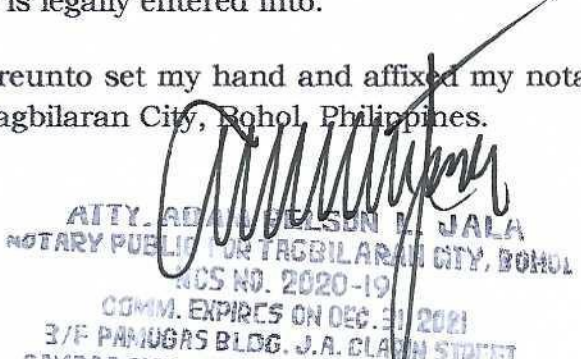 is legally entered into.
reunto set my hand and affixed my nota
agbilaran City, Bohol, Philippines.
ATTY. ADAM RELSON L. JALA
NOTARY PUBLIC FOR TAGBILARAN CITY, BOHOL
NCS NO. 2020-19
COMM. EXPIRES ON DEC. 31 2021
3/F PAMUGAS BLDG. J.A. CLARIN STREET